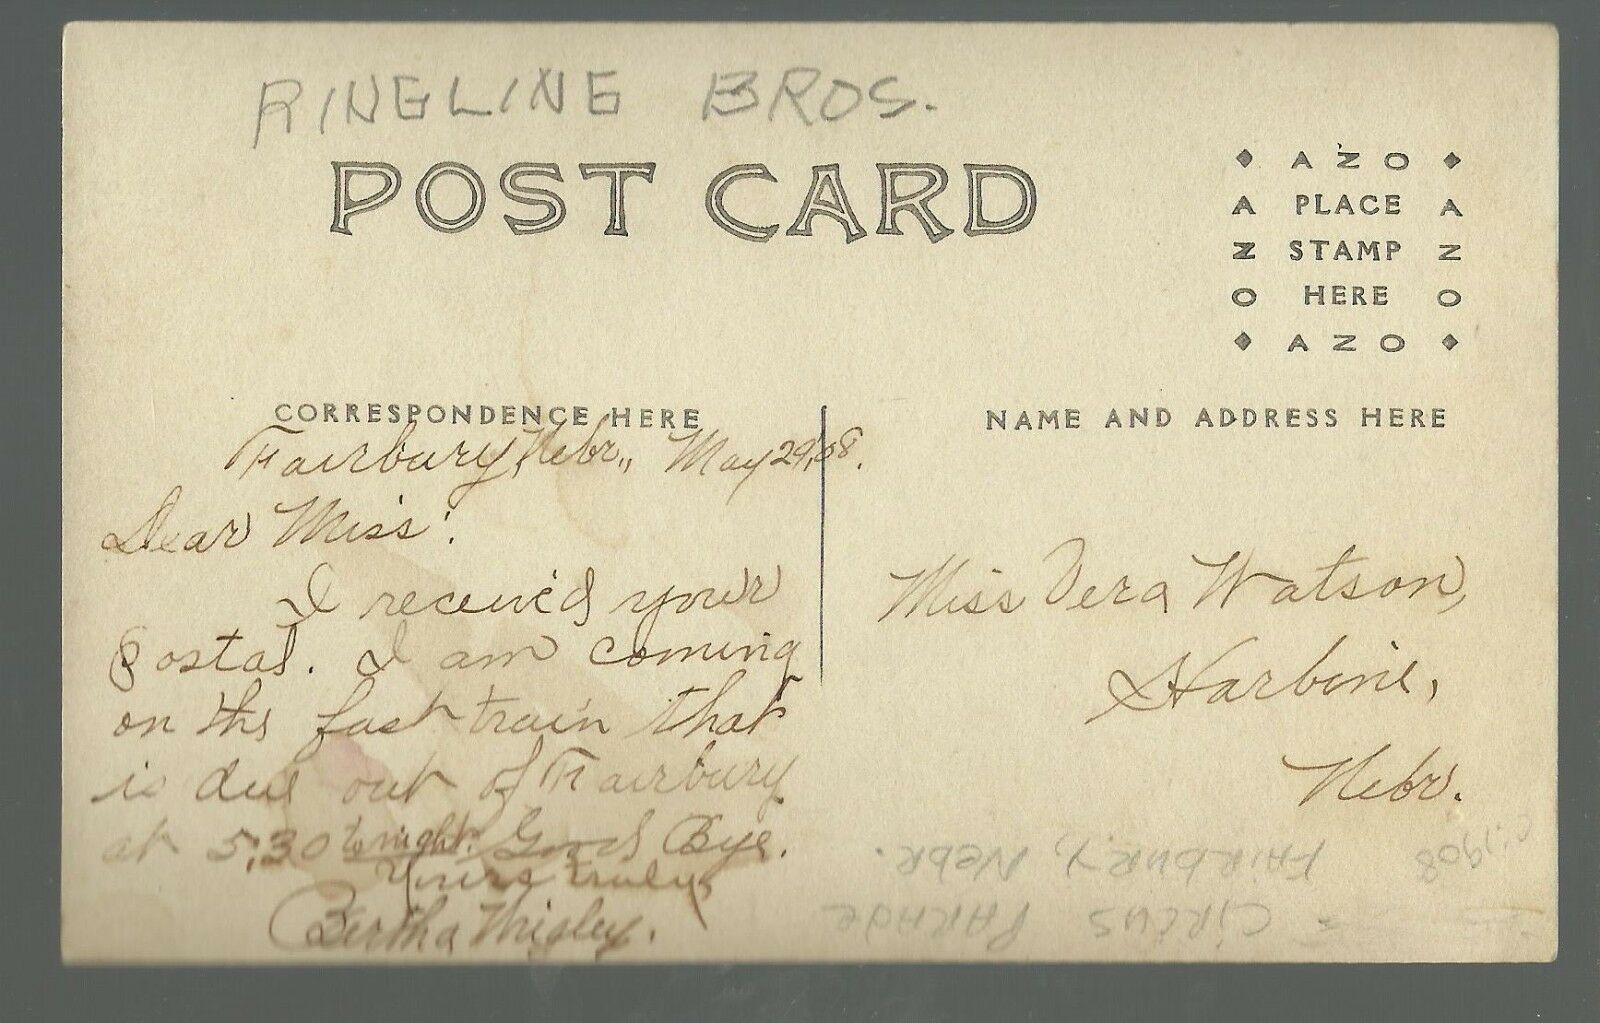 RINGLING BROS.
POST CARD
AZO
A PLACE A
N STAMP N
O HERE O
AZO
CORRESPONDENCE HERE
NAME AND ADDRESS HERE
Fairbury, Nebr., May 29, 08.
Dear Miss:
I receiv'd your
Postal. I am coming
on the fast train that
is due out of Fairbury
at 5:30 tonight. Good Bye.
Yours truly,
Bertha
Miss Vera Watson,
Harbine,
Nebr.
C. 1908 FAIRBURY, NEBR.
CIRCUS PARADE